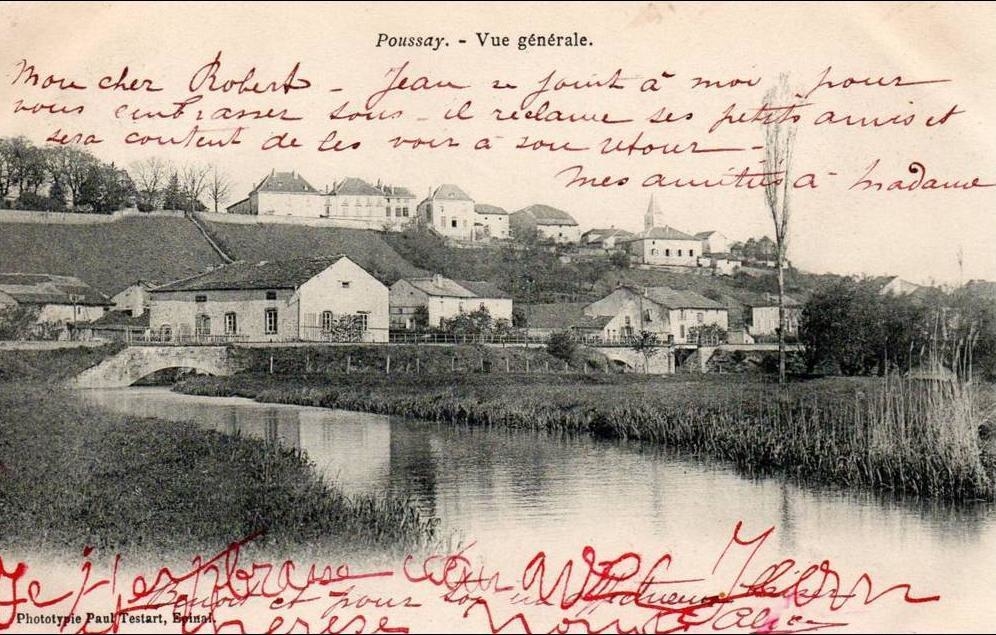 Poussay. - Vue générale.
Mon cher Robert - Jean se joint à moi pour
vous embrasser tous - il réclame ses petits amis et
sera content de les voir à son retour -
mes amitiés à Madame
Je t'embrasse
Benoit et pour toi un affectueux baiser
Phototypie Paul Testart, Epinal.
et Thérèse